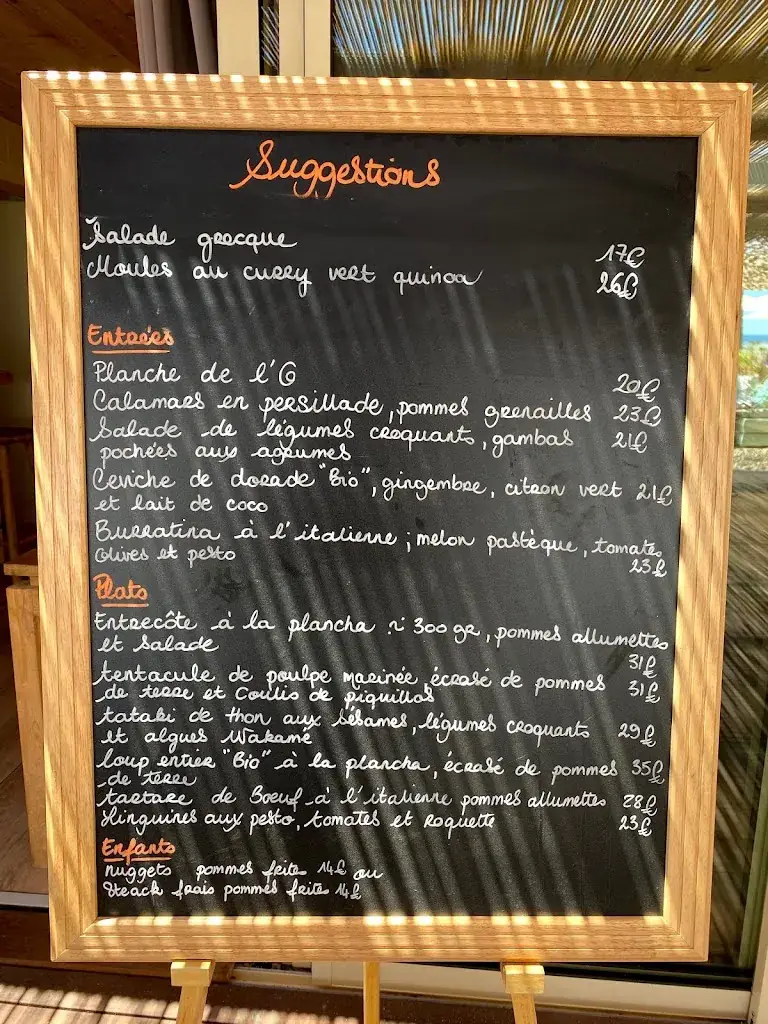 Suggestions
Salade grecque 17€
Moules au curry vert quinoa 26€
Entrées
Planche de l'O 20€
Calamars en persillade, pommes grenailles 23€
Salade de légumes croquants, gambas 21€
pochées aux agrumes
Ceviche de dorade "Bio", gingembre, citron vert 21€
et lait de coco
Burratina à l'italienne ; melon pastèque, tomates
Olives et pesto 23€
Plats
Entrecôte à la plancha ~ 300 gr, pommes allumettes
et salade 31€
tentacule de poulpe marinée, écrasé de pommes 31€
de terre et Coulis de piquillos
tataki de thon aux sésames, légumes croquants 29€
et algues Wakamé
loup entier "Bio" à la plancha, écrasé de pommes 35€
de terre
tartare de Boeuf à l'italienne pommes allumettes 28€
Linguines aux pesto, tomates et roquette 23€
Enfants
nuggets pommes frite 14€ ou
Steack frais pommes frite 14€